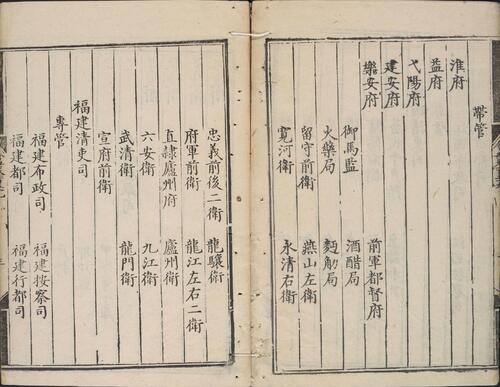 帶管
淮府
益府
弋陽府
建安府
樂安府 前軍都督府
御馬監 酒醋局
火藥局 麵觔局
留守前衛 燕山左衛
寬河衛 永清右衛
忠義前後二衛 龍驤衛
府軍前衛 龍江左右二衛
直隷廬州府 廬州衛
六安衛 九江衛
武清衛 龍門衛
宣府前衛
福建清吏司
專管
福建布政司 福建按察司
福建都司 福建行都司